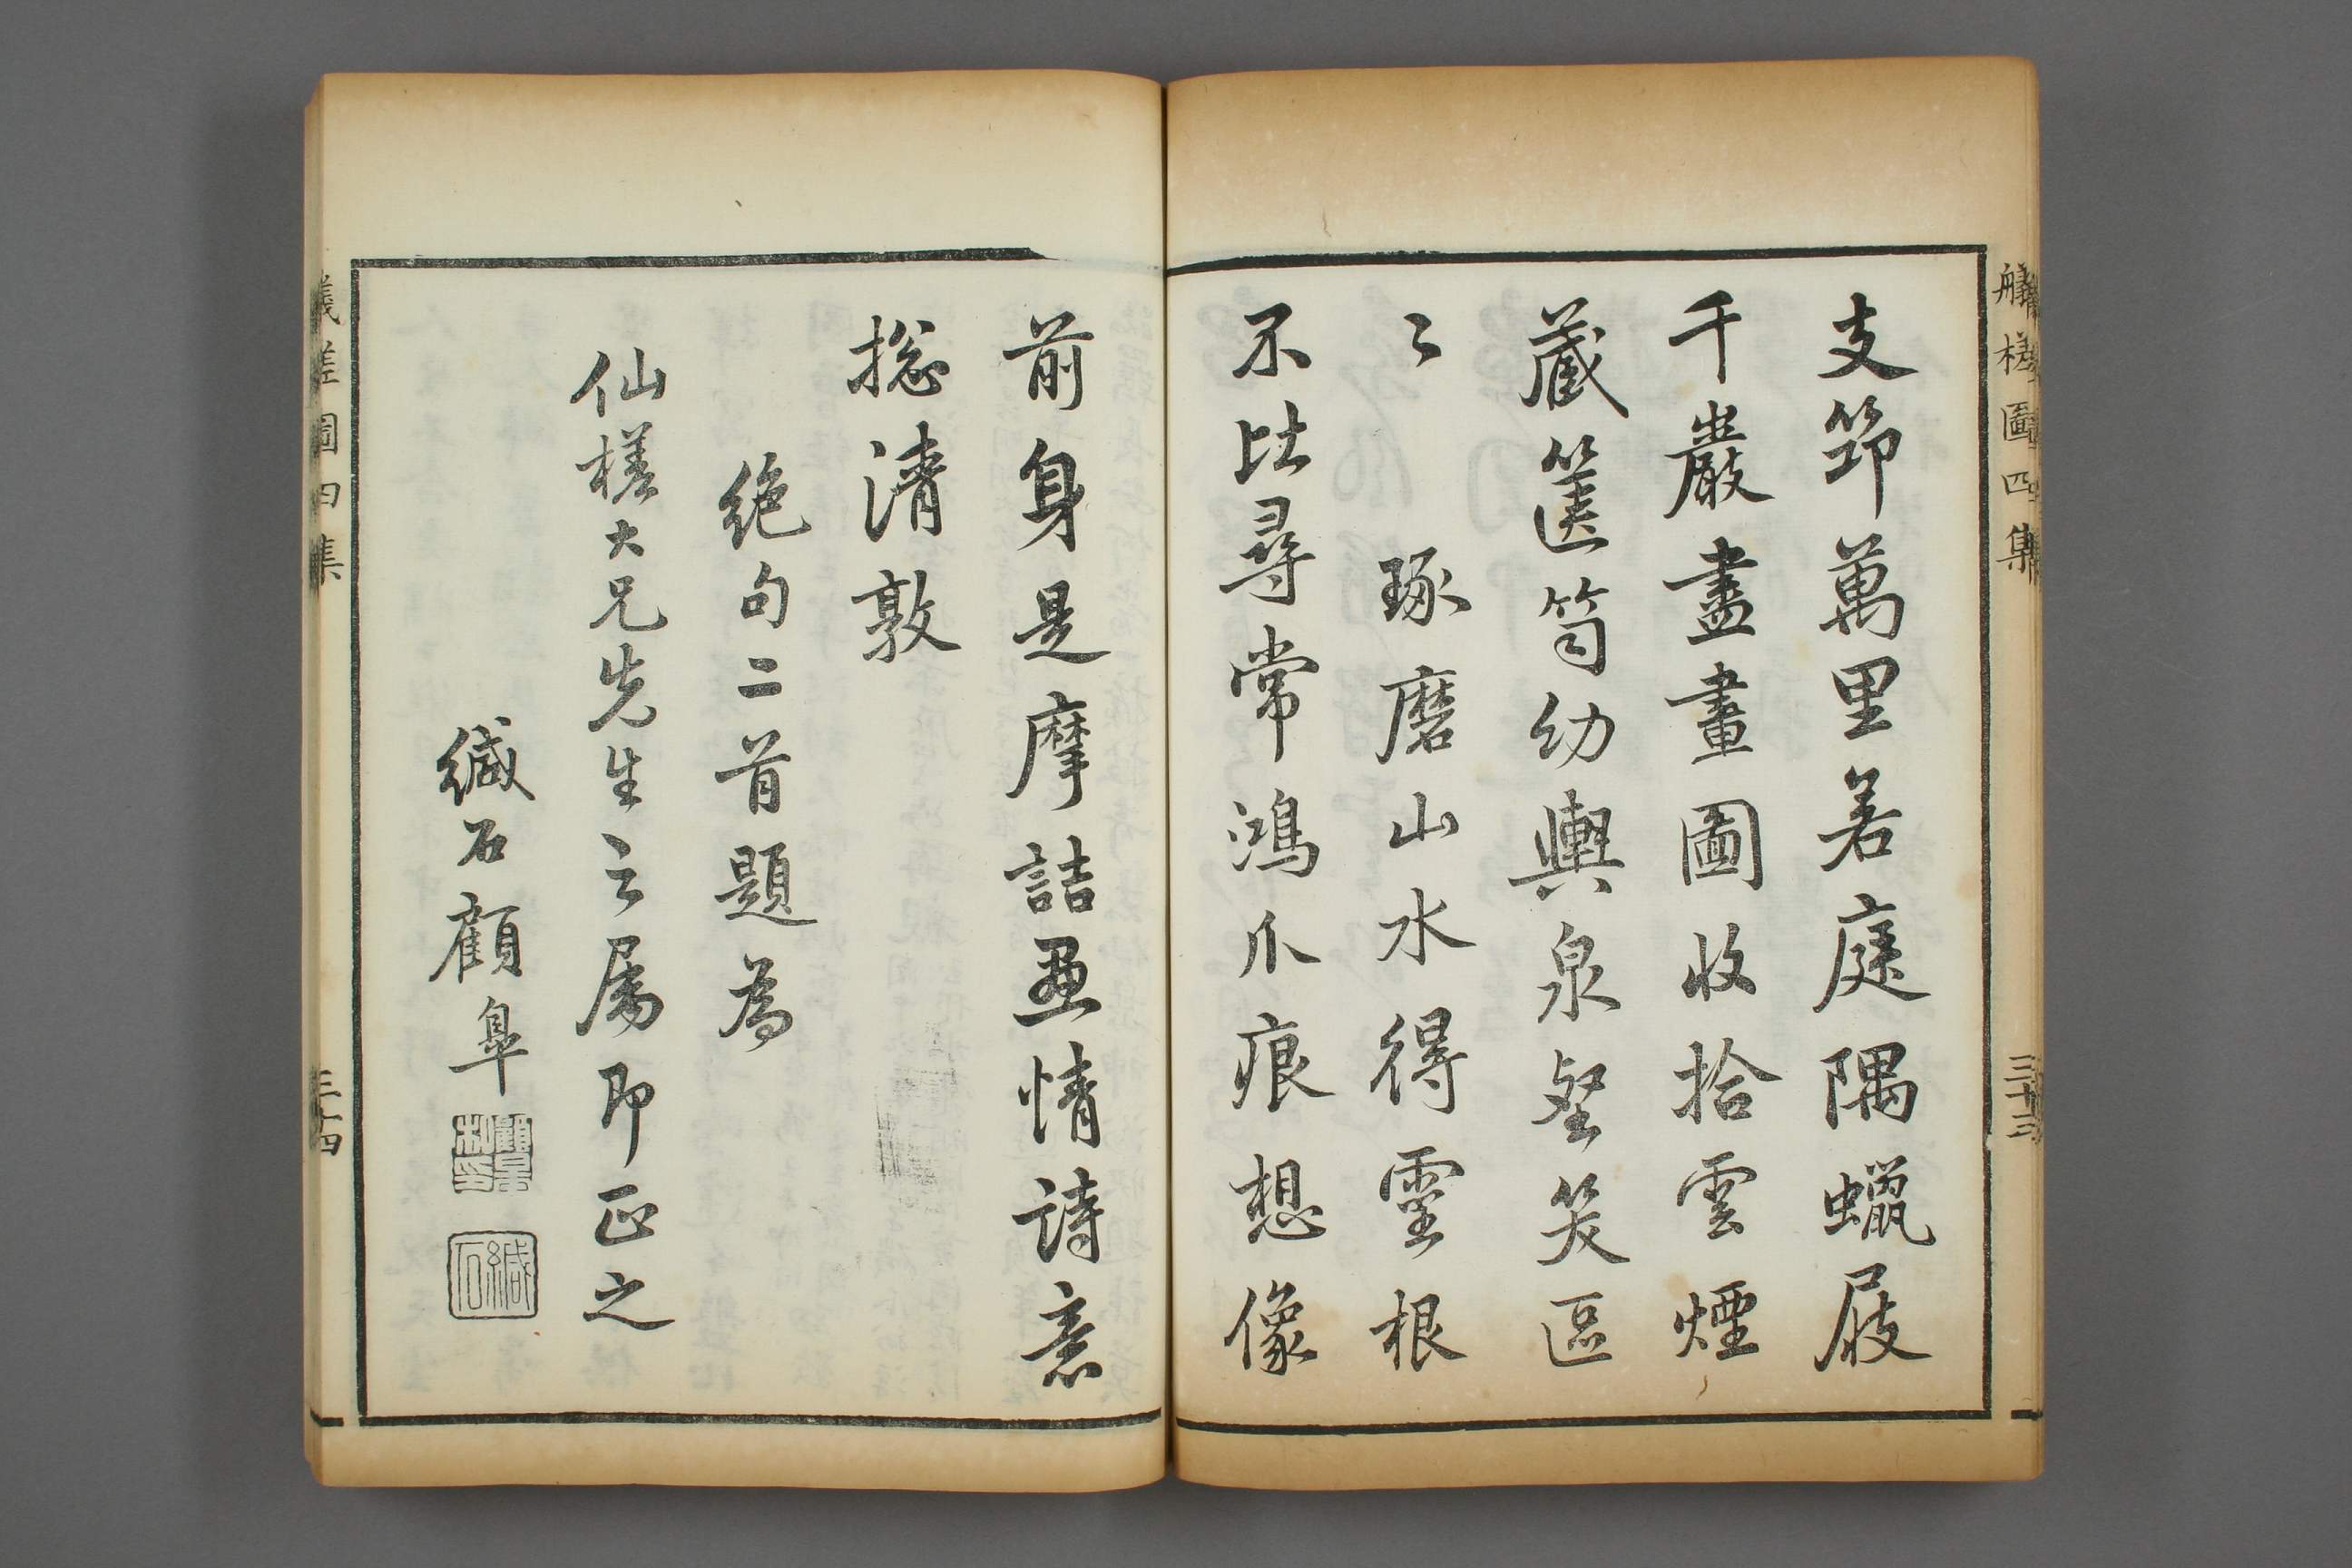 艤槎圖四集
三十三
支筇萬里若庭隅蠟屐
千巖盡畫圖收拾雲煙
藏篋笥幼輿泉壑笑區
〻　琢磨山水得靈根
不比尋常鴻爪痕想像
前身是摩詰畫情詩意
摠清敦
絶句二首題為
仙槎大兄先生之屬即正之
緘石顧皐
緘石
艤槎圖四集
三十四